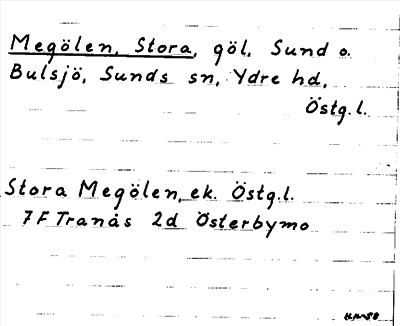 Megölen, Stora, göl, Sund o.
Bulsjö, Sunds sn, Ydre hd,
Östg.l.
Stora Megölen, ek. Östg.l.
7F Tranås 2d Österbymo